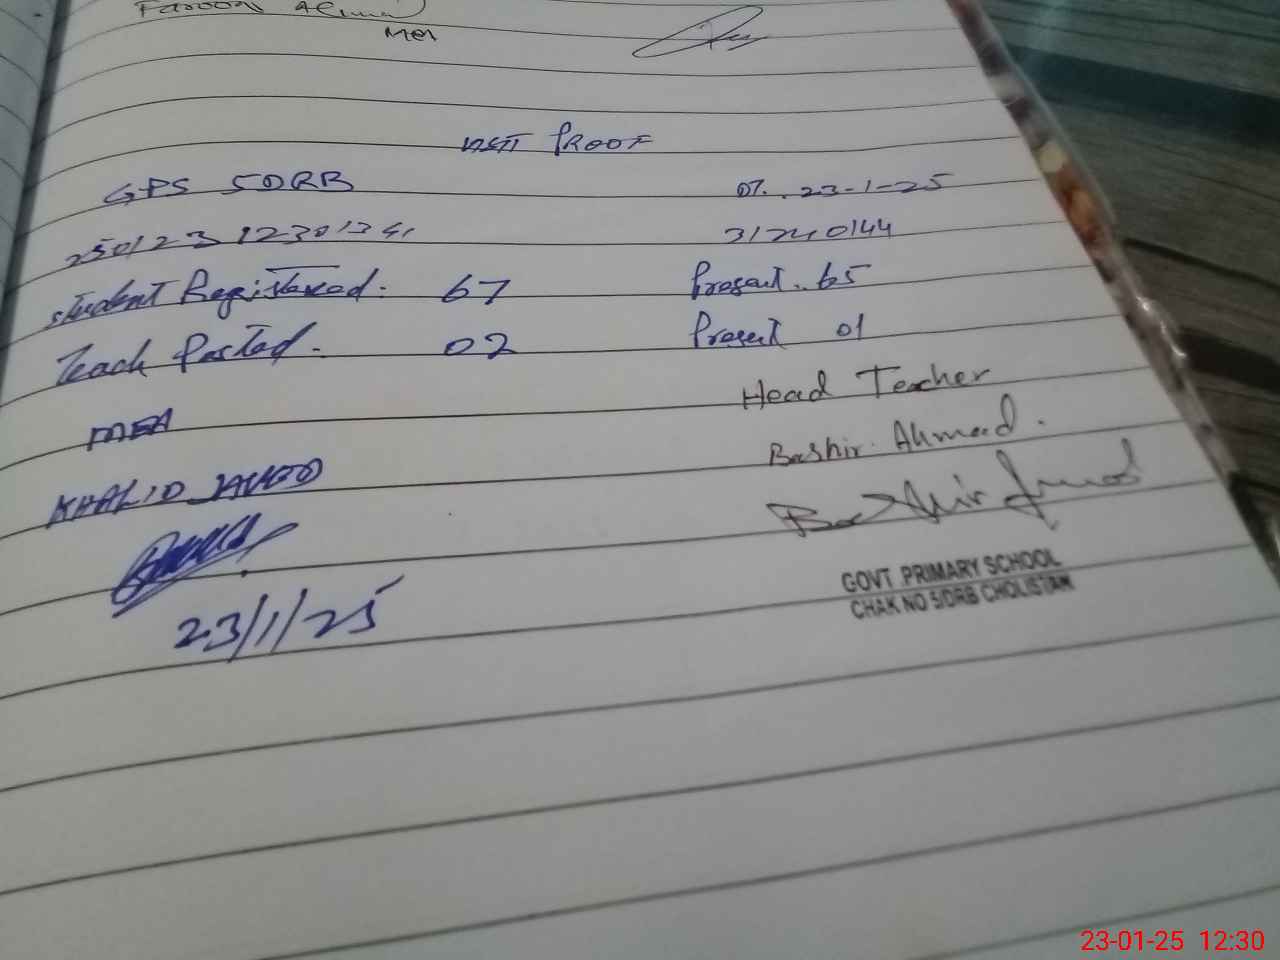 Farooq Ahmad
MEA
VISIT PROOF
GPS 5DRB
DT. 23-1-25
31240144
Student Registered: 67
Present. 65
Teach Posted. 02
Present 01
MEA
Head Teacher
KHALID JAVED
Bashir Ahmad.
Bashir Ahmad
23/1/25
GOVT. PRIMARY SCHOOL
CHAK NO 5/DRB CHOLISTAN
23-01-25 12:30